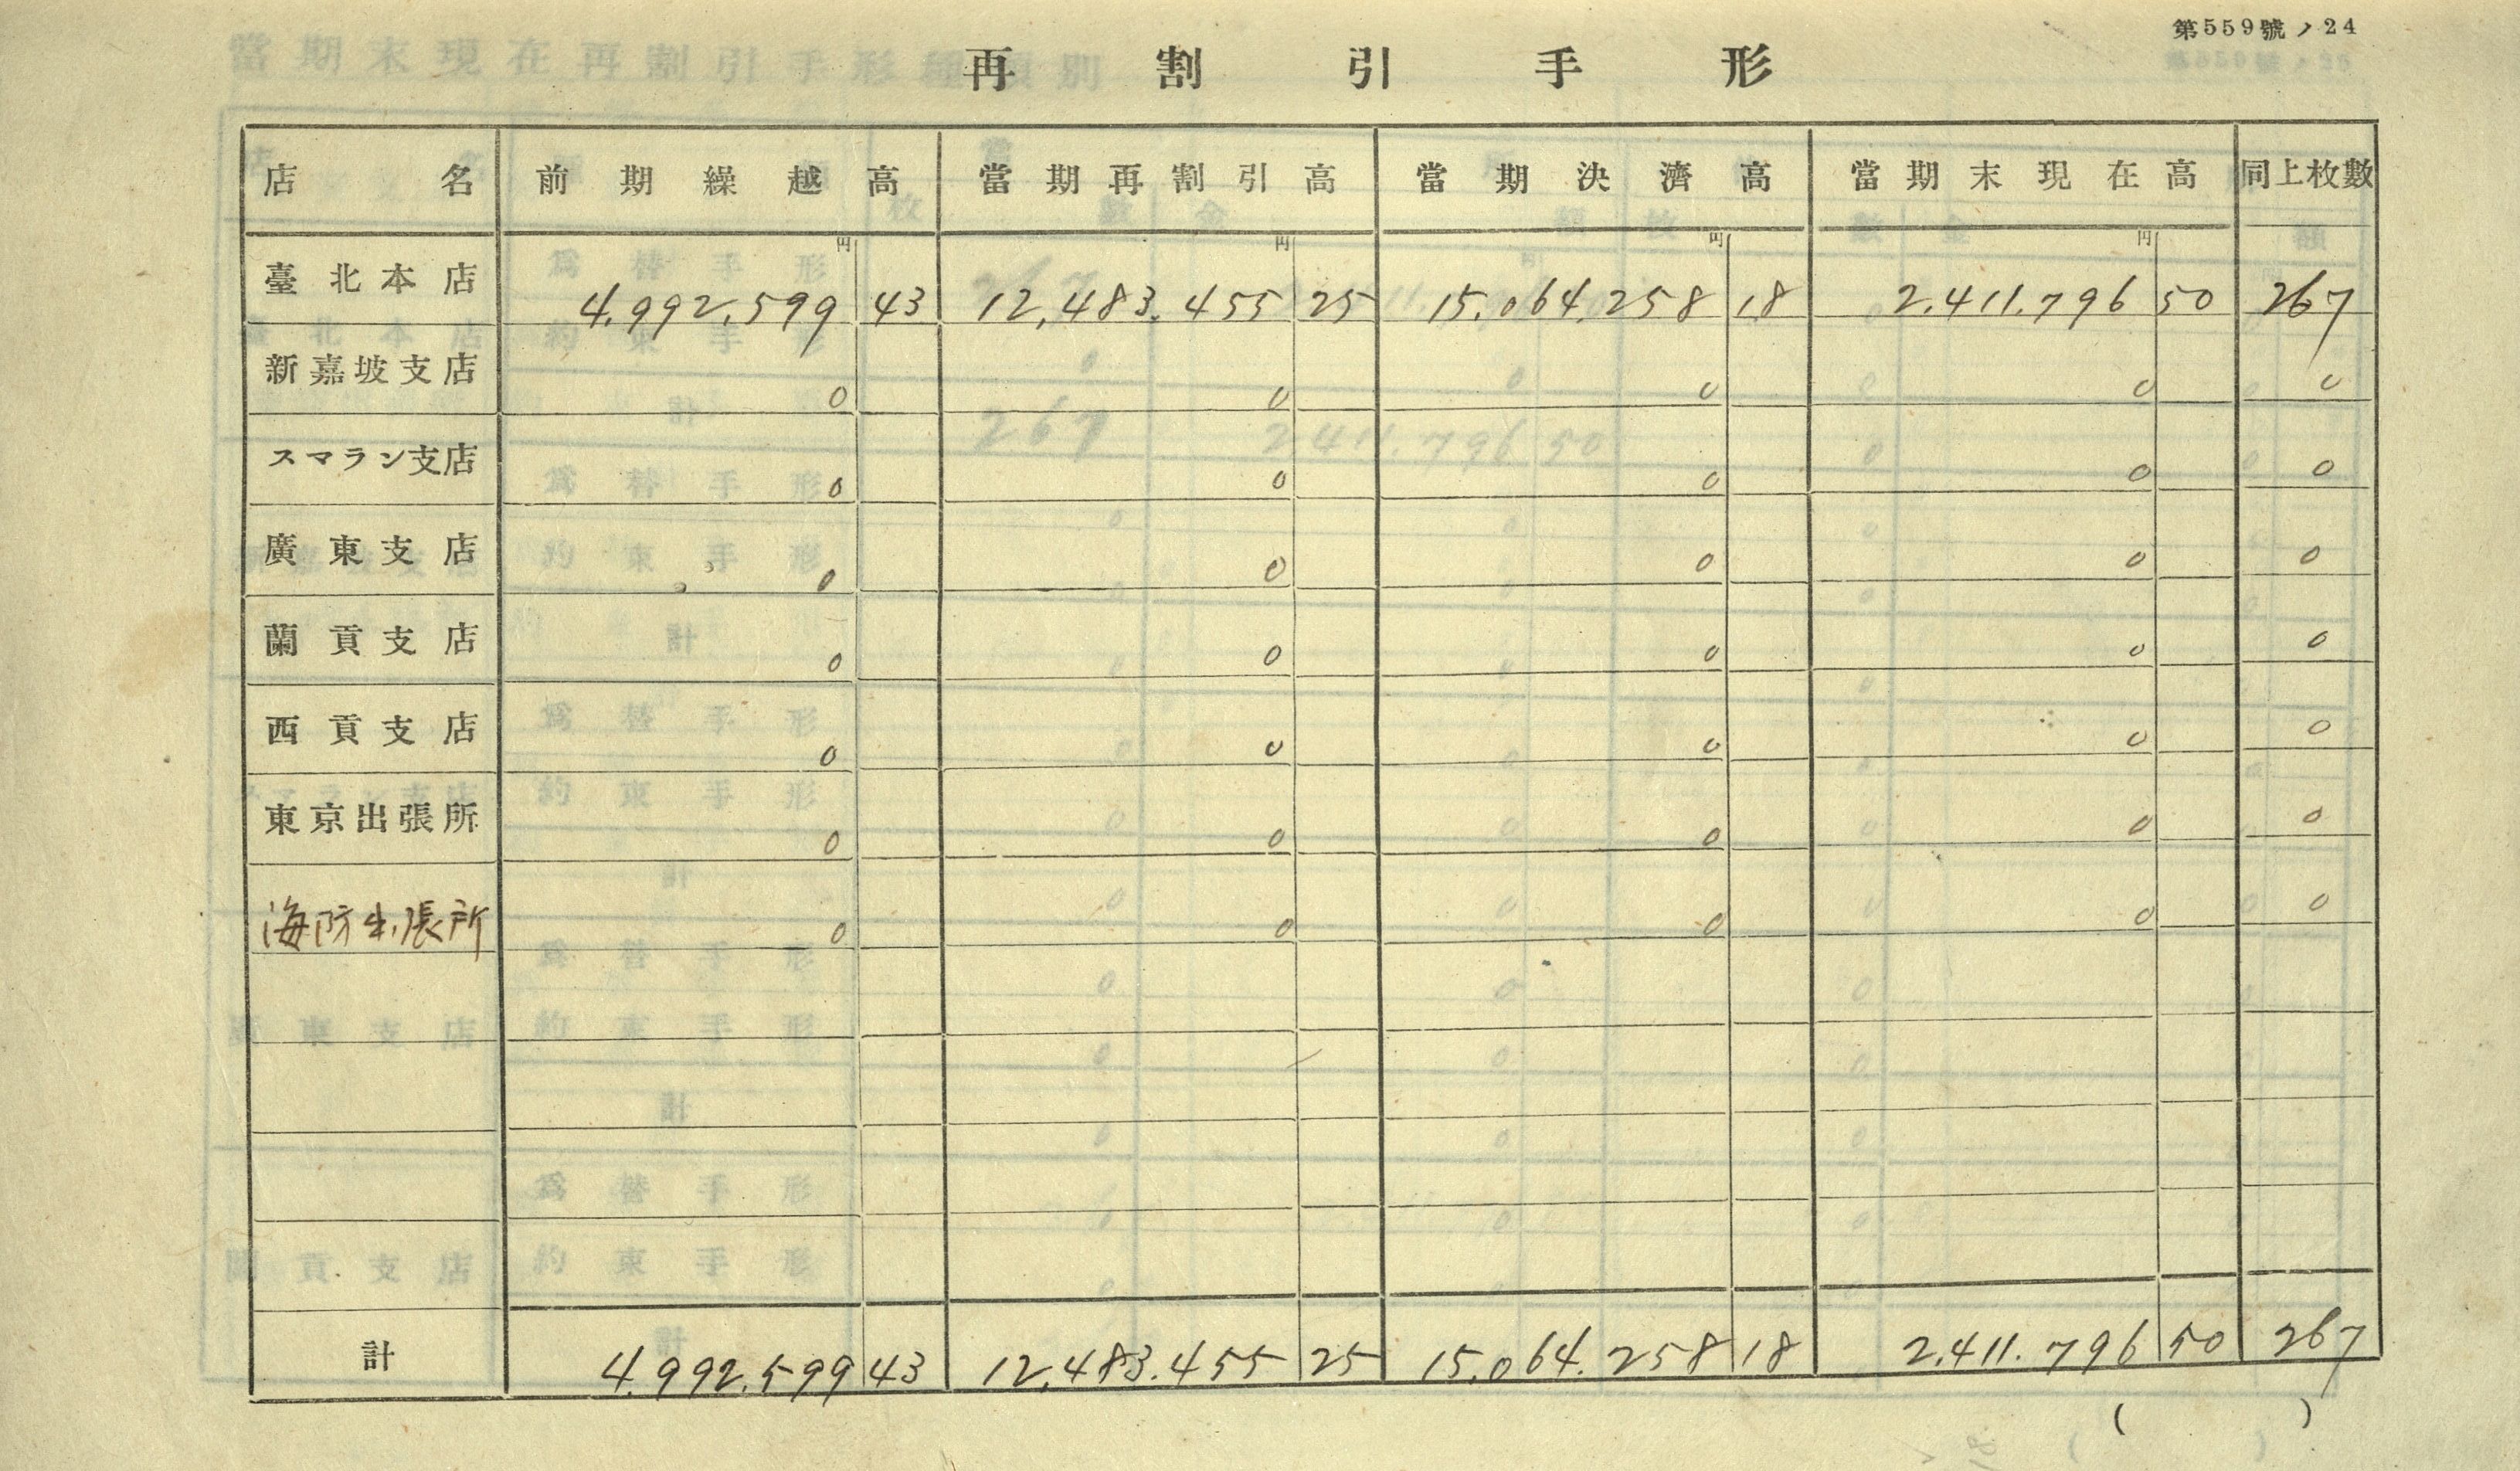 第559號ノ24
再割引手形
店名 前期繰越高 當期再割引高 當期決濟高 當期末現在高 同上枚數
円 円 円 円
臺北本店 4,992,599 43 12,483,455 25 15,064,258 18 2,411,796 50 267
新嘉坡支店 0 0 0 0 0
スマラン支店 0 0 0 0 0
廣東支店 0 0 0 0 0
蘭貢支店 0 0 0 0 0
西貢支店 0 0 0 0 0
東京出張所 0 0 0 0 0
海防出張所 0 0 0 0 0
計 4,992,599 43 12,483,455 25 15,064,258 18 2,411,796 50 267
( )